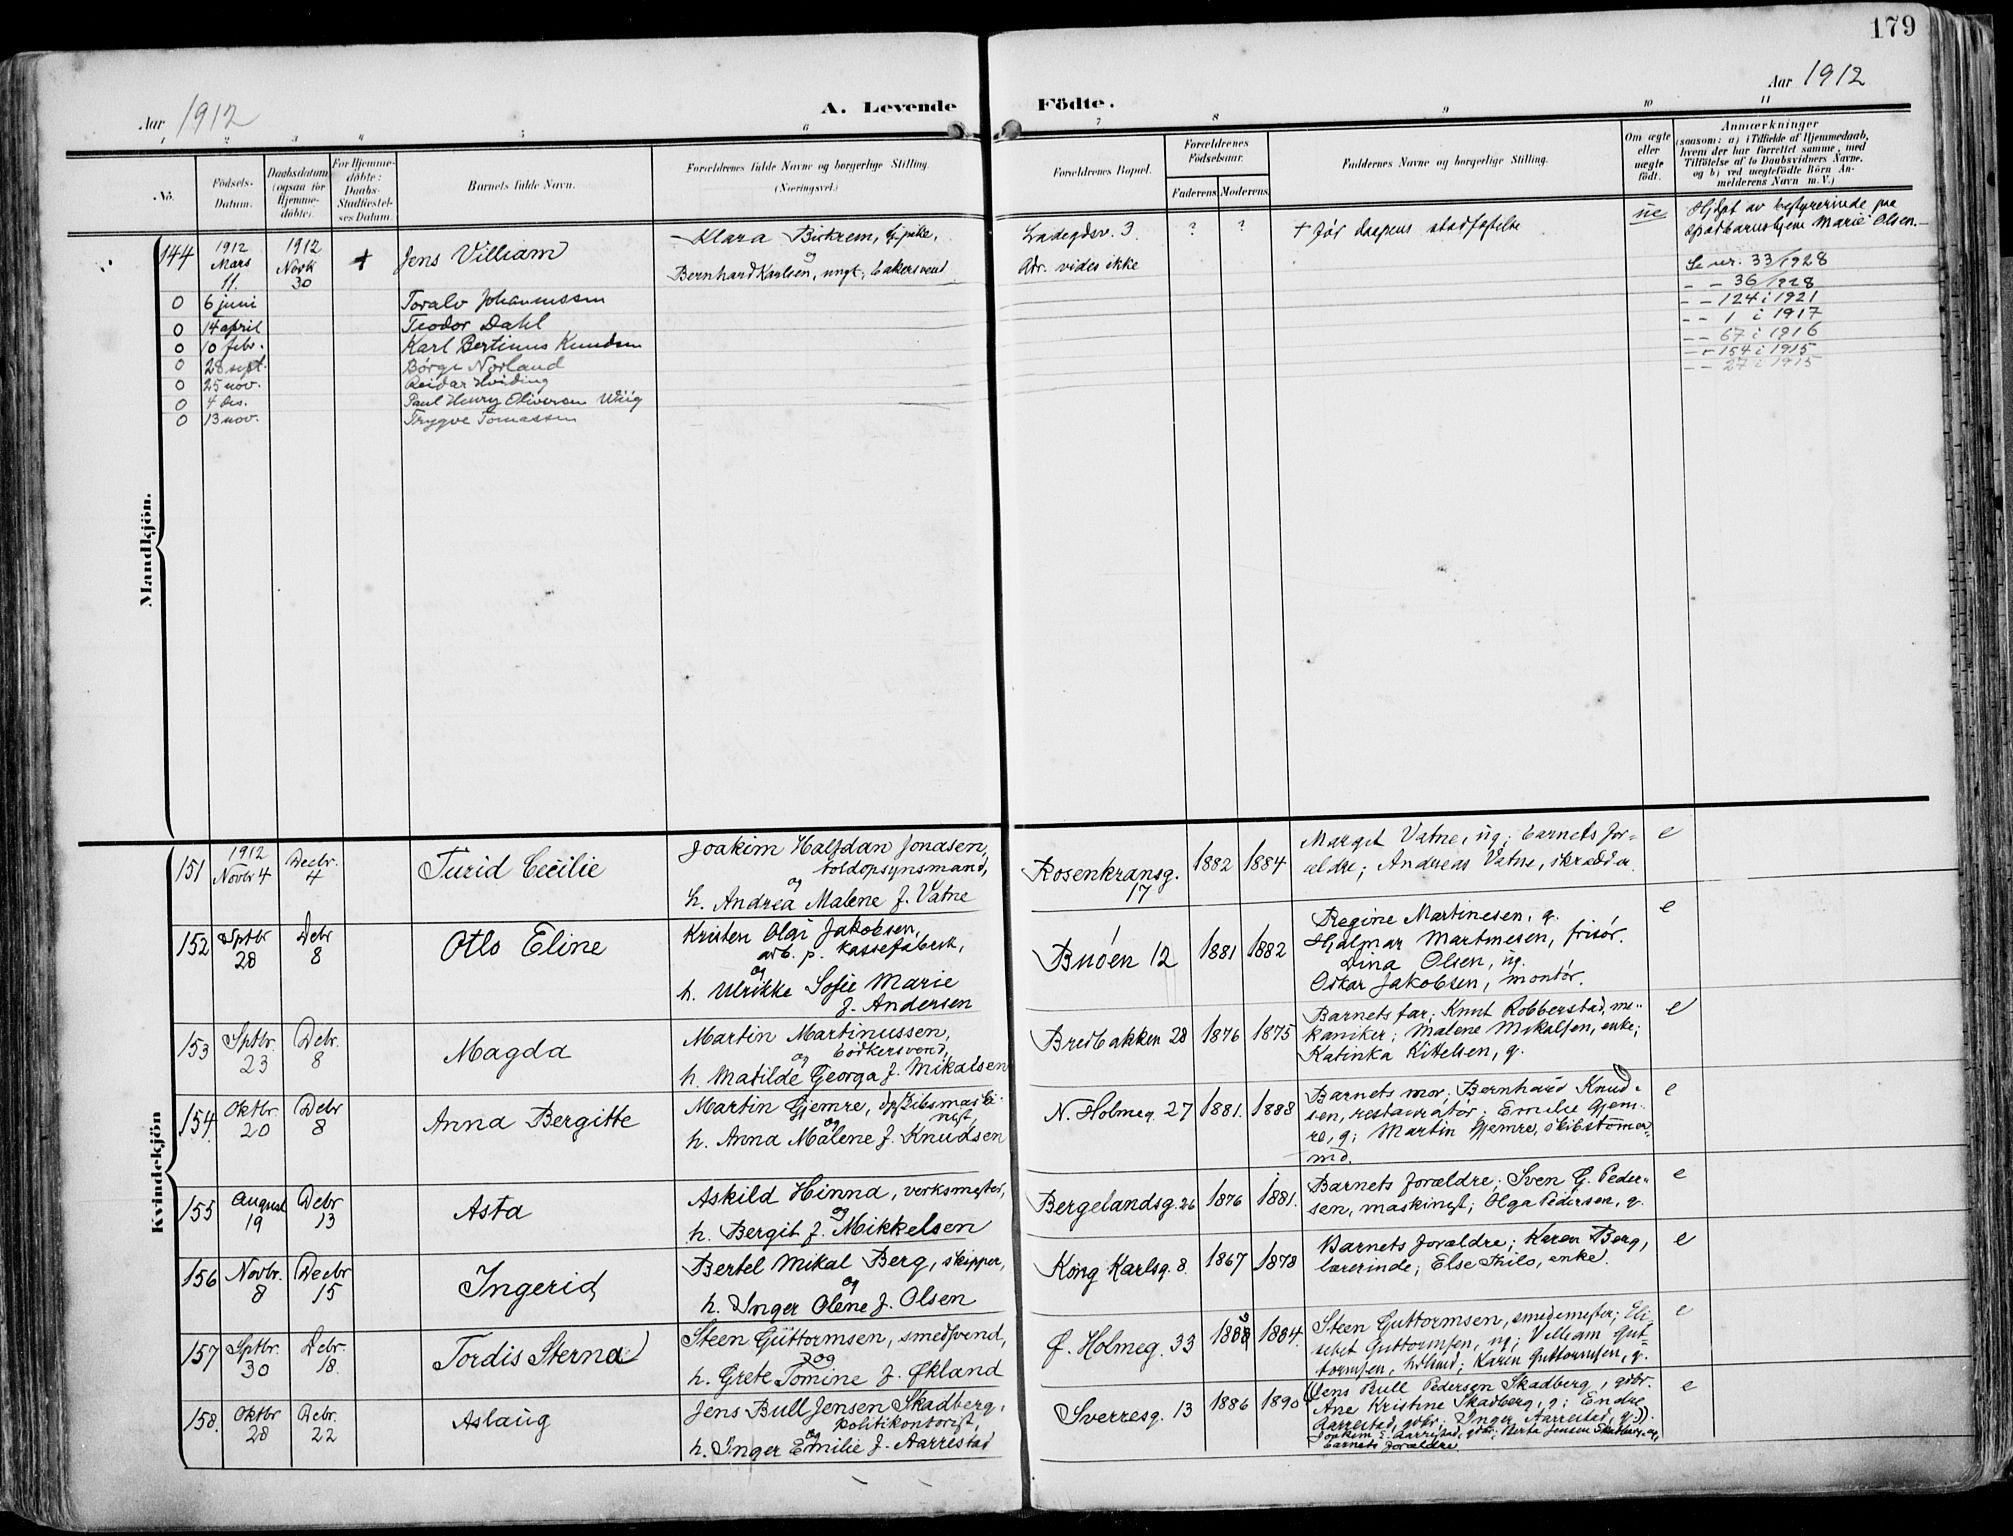 179
Aar 1912
A. Levende
Födte.
Aar 1912
1 2 3 4 5 6 7 8 9 10 11
No.
Födsels-
Datum.
Daabsdatum
(ogsaa for
Hjemme-
döbte).
For Hjemme-
döbte:
Daabs-
Stadfæstel-
ses Datum.
Barnets fulde Navn.
Forældrenes fulde Navne og borgerlige Stilling.
(Næringsvei.)
Forældrenes Bopæl.
Forældrenes
Födselsaar.
Faderens. Moderens.
Faddernes Navne og borgerlige Stilling.
Om ægte
eller
uægte
födt.
Anmærkninger
(saasom: a) i Tilfælde af Hjemmedaab,
hvem der har forrettet samme, med
Tilföielse af to Daabsvidners Navne,
og b) ved uægtefödte Börn An-
melderens Navn m. V.)
Mandkjön.
144
1912
Mars
11.
1912
Novbr
30
+
Jens Villiam
Klara Birkrem, tj.pike,
og
Bernhard Karlsen, ungk., bakersvend
Ladegdsv. 3.
Adr. vides ikke
? ?
+ før daapens stadfæstelse
ue
Hjdpt av bestyrerinde paa
spædbarnshjem Marie Olsen.
0 6 juni Toralv Johannessen Se nr. 33/1928
0 14 april Teodor Dahl - - 36/1928
0 10 febr. Karl Bertinus Knudsen - - 124 i 1921
0 28 sept. Børge Norland - - 1 i 1917
0 25 nov. Reidar Hviding - - 67 i 1916
0 4 des. Paul Henry Oliversen Wiig - - 154 i 1915
0 13 nov. Trygve Tomassen - - 27 i 1915
Kvindekjön
151
1912
Novbr 4
Decbr.
4
Turid Cecilie
Joakim Halfdan Jonasen,
toldopsynsmand,
og
h. Andrea Malene f. Vatne
Rosenkransg.
17
1882 1884
Marget Vatne, ug.; barnets for-
ældre; Andreas Vatne, skrædder.
e
152
Sptbr
28
Debr
8
Otlo Eline
Kristen Olai Jakobsen,
arb. p. kassefabrik,
og
h. Ulrikke Sofie Marie
f. Andersen
Buöen 12
1881 1882
Regine Martinesen, g.
Hjalmar Martinesen, frisør.
Dina Olsen, ug.
Oskar Jakobsen, montør.
e
153
Sptbr.
23
Debr.
8
Magda
Martin Martinussen,
bødkersvend,
og
h. Matilde Georga f. Mikalsen
Bredbakken 28
1876 1875
Barnets far; Knut Robberstad, me-
kaniker; Malene Mikalsen, enke;
Katinka Kittelsen, g.
e
154
Oktbr.
20
Debr
8
Anna Bergitte
Martin Gjemre, dpskibsmaski-
nist,
og
h. Anna Malene f. Knudsen
N. Holmeg. 27
1881. 1888
Barnets mor; Bernhard Knud-
sen, restauratør; Emilie Gjem-
re, g; Martin Gjemre, skibstømer-
md.
e
155
August
19
Debr
13
Asta
Askild Hinna, verksmester,
og
h. Bergit f. Mikkelsen
Bergelandsg. 26
1876 1881.
Barnets forældre; Sven G. Peder-
sen, maskinist; Olga Pedersen, g.
e
156
Novbr.
8
Decbr
15
Ingerid
Bertel Mikal Berg, skipper,
og
h. Inger Olene f. Olsen
Kong Karlsg. 8.
1867 1878
Barnets forældre; Karen Berg,
lærerinde; Else Thilo, enke.
e
157
Sptbr.
30
Debr.
18.
Tordis Sterna
Steen Guttormsen, smedsvend,
og
h. Grete Tomine f. Økland
Ø. Holmeg. 33
1884.
Steen Guttormsen, smedemester; Eli-
sebet Guttormsen, ug; Villiam Gut-
tormsen, ; Karen Guttormsen, g.
e
158.
Oktbr
28
Debr.
22
Aslaug
Jens Bull Jensen Skadberg,
politikontorist,
og
h. Inger Emilie f. Aarrestad
Sverresg. 13
1886 1890
Jens Bull Pedersen Skadberg, gdbr.
Ane Kristine Skadberg, g; Endre
Aarrestad, gdbr; Inger Aarrestad, g;
Joakim E. Aarrestad, gdbr; Berta Jensen Skadberg, ug,
barnets forældre
e